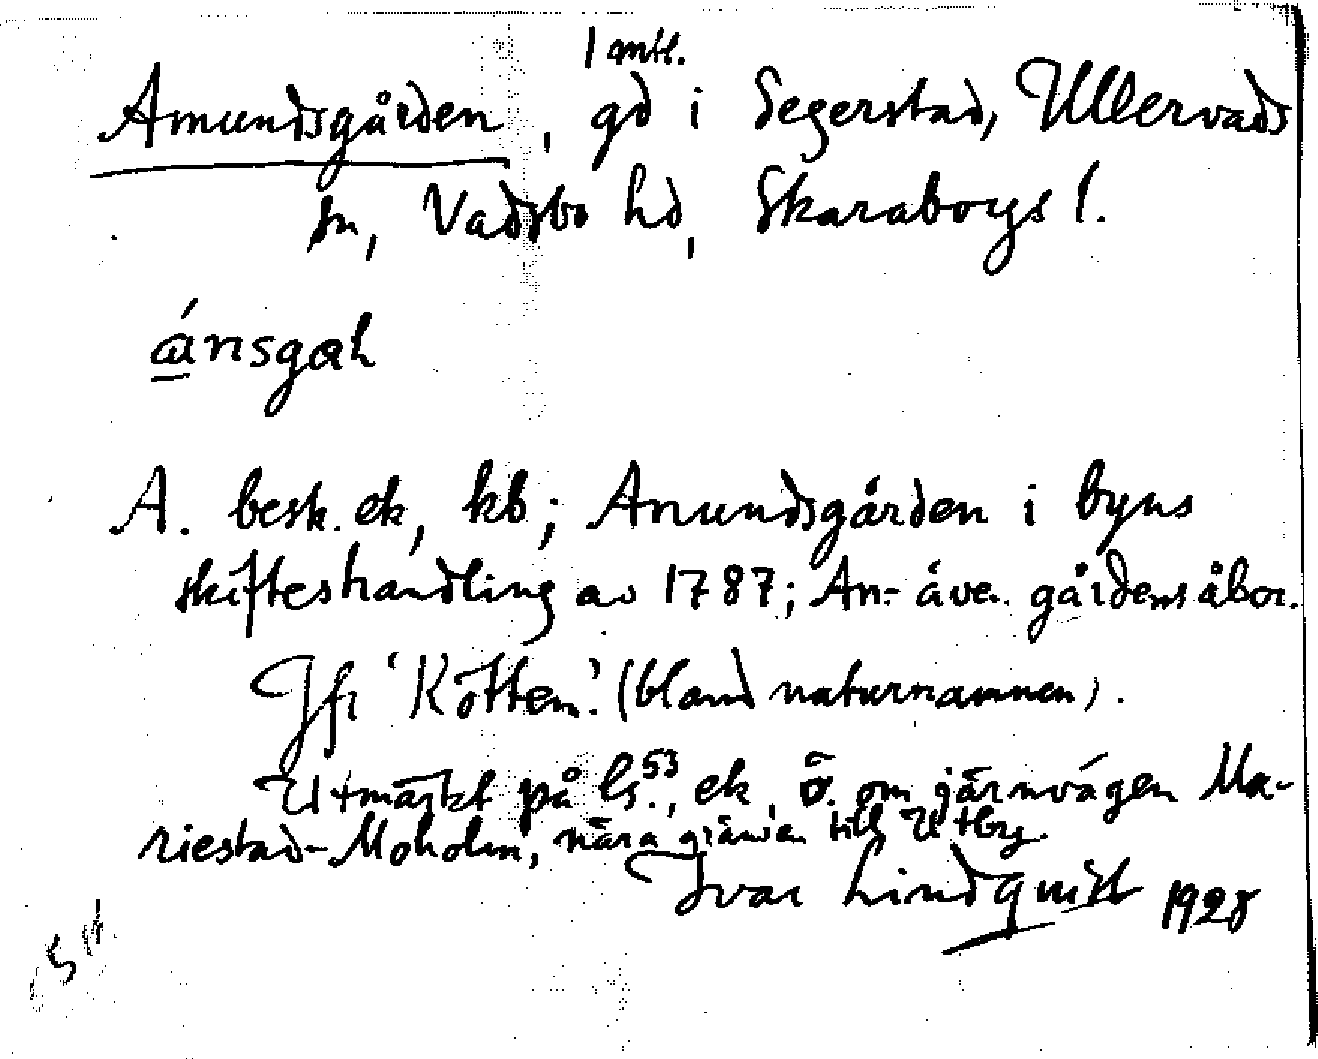 1 mtl.
Amundsgården, gd i Segerstad, Ullervads
sn, Vadsbo hd, Skaraborgs l.
ánsgah
A. besk. ek, kb; Anundsgården i byns
skifteshandling av 1787; An- äve. gårdens åbor.
Jfr 'Kötten.' (bland naturnamnen).
Utmärkt på Gs.53, ek, ö. om järnvägen Ma-
riestad-Moholm, nära gränsen till Utby.
Ivar Lindquist 1928